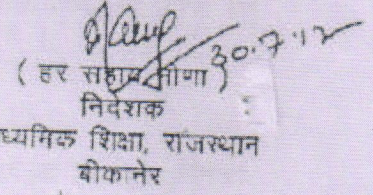 30.7.12
( हर सहाय मीणा )
निदेशक
ध्यमिक शिक्षा, राजस्थान
बीकानेर